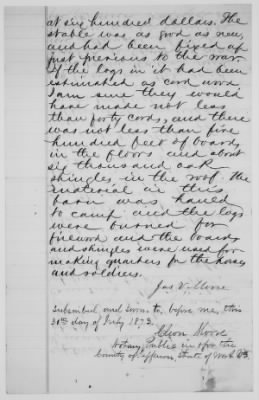 at six hundred dollars. The
stable was as good as new,
and had been fixed up
just previous to the war.
If the logs in it had been
estimated as cord wood
I am sure they would
have made not less
than forty cords, and there
was not less than five
hundred feet of boards
in the floor and about
six thousand oak
shingles in the roof. The
material in this
barn was hauled
to camp and the logs
were burned for
firewood and the boards
and shingles were used for
making quarters for the horses
and soldiers.
Jas V. Moore
Subscribed and sworn to before me, this
30th day of July 1873.
Cleon Moore
Notary Public in & for the
County of Jefferson, State of West Va